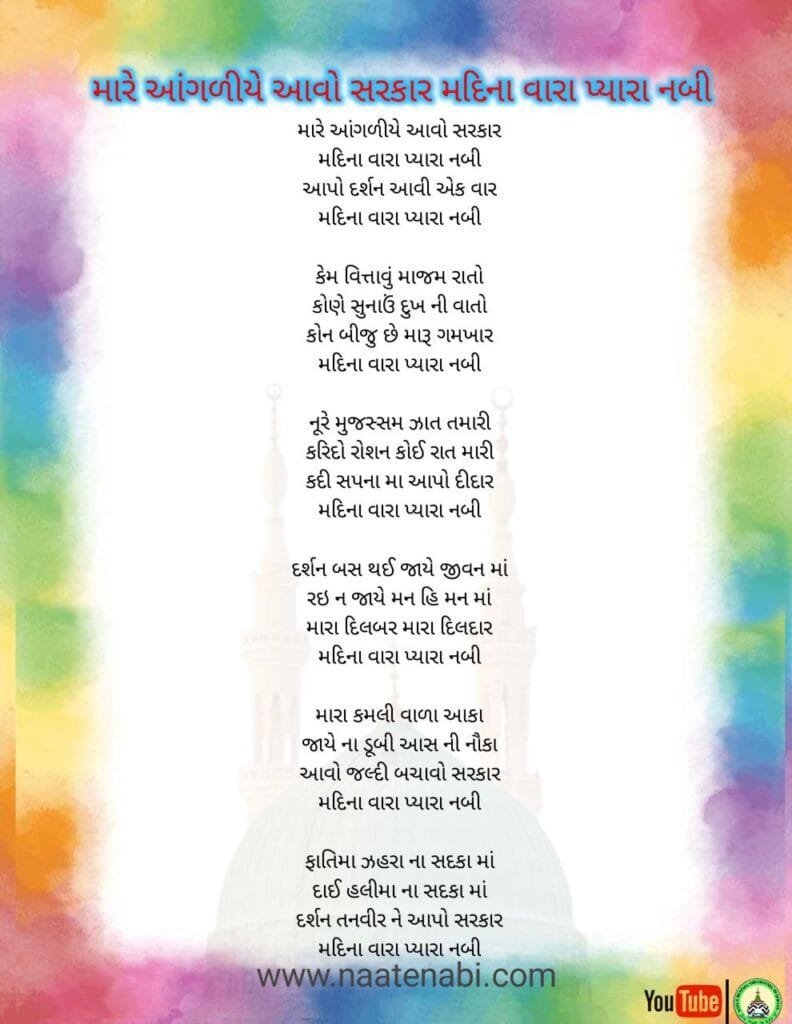 મારે આંગળીયે આવો સરકાર મદિના વારા પ્યારા નબી
મારે આંગળીયે આવો સરકાર
મદિના વારા પ્યારા નબી
આપો દર્શન આવી એક વાર
મદિના વારા પ્યારા નબી
કેમ વિત્તાવું માજમ રાતો
કોણે સુનાઉં દુખ ની વાતો
કોન બીજુ છે મારૂ ગમખાર
મદિના વારા પ્યારા નબી
નૂરે મુજસ્સમ ઝાત તમારી
કરિદો રોશન કોઈ રાત મારી
કદી સપના મા આપો દીદાર
મદિના વારા પ્યારા નબી
દર્શન બસ થઈ જાયે જીવન માં
રઇ ન જાયે મન હિ મન માં
મારા દિલબર મારા દિલદાર
મદિના વારા પ્યારા નબી
મારા કમલી વાળા આકા
જાયે ના ડૂબી આસ ની નૌકા
આવો જલ્દી બચાવો સરકાર
મદિના વારા પ્યારા નબી
ફાતિમા ઝહરા ના સદકા માં
દાઈ હલીમા ના સદકા માં
દર્શન તનવીર ને આપો સરકાર
મદિના વારા પ્યારા નબી
www.naatenabi.com
YouTube